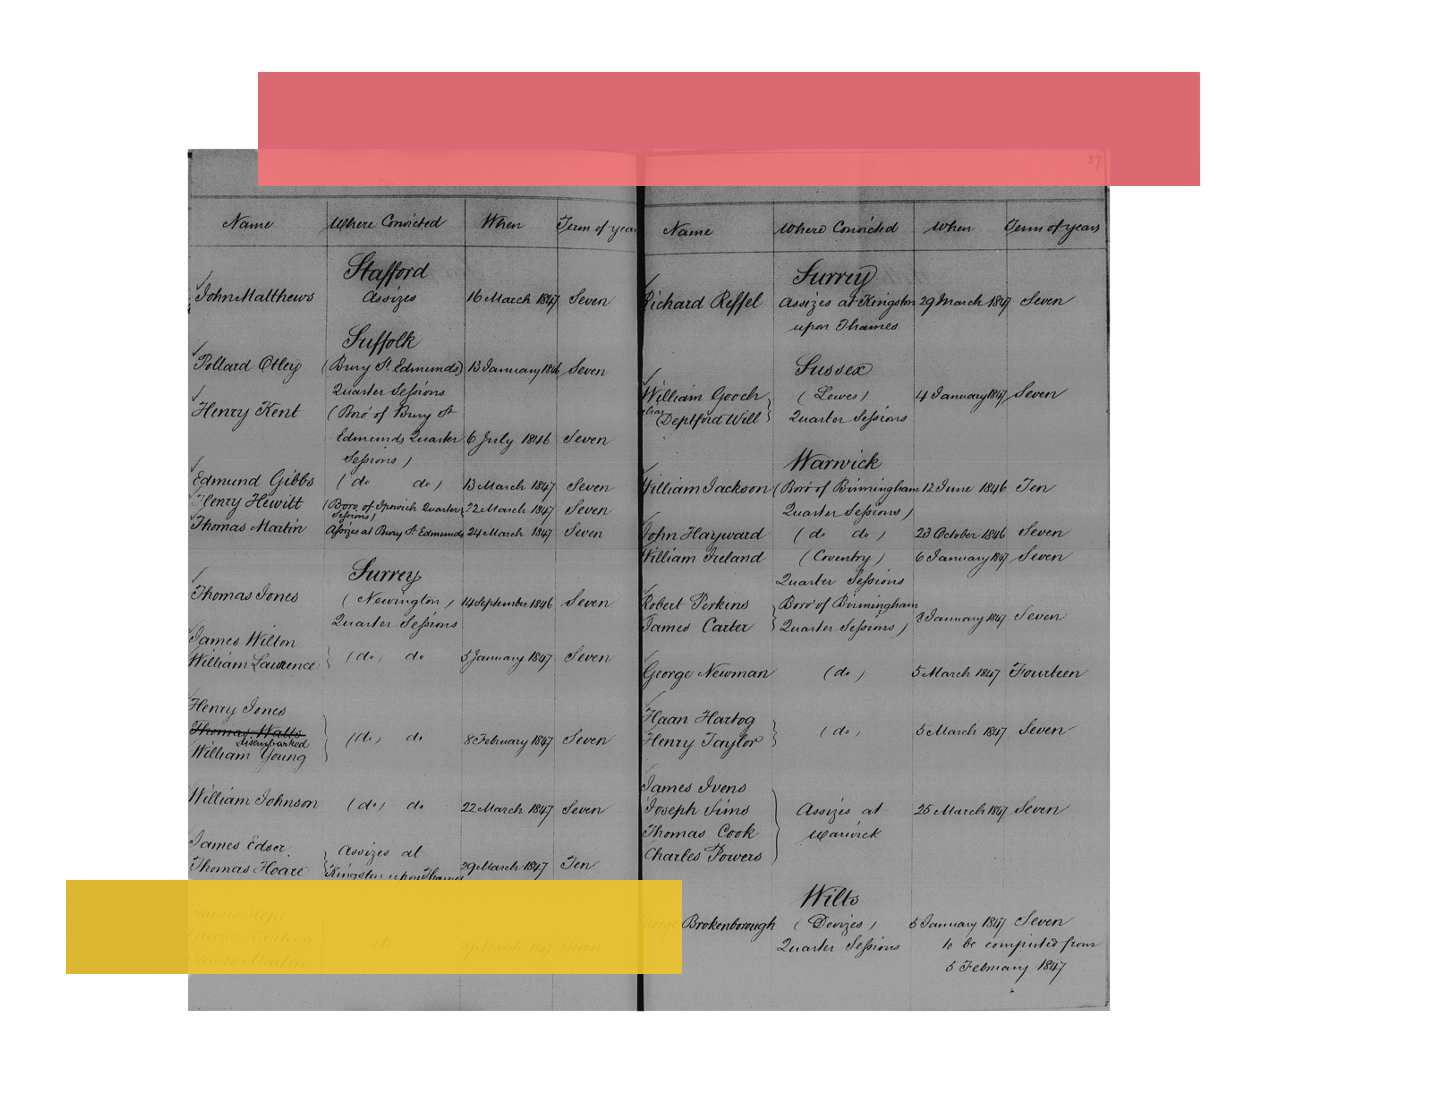 Name Where Convicted When Term of years
Stafford
John Matthews Assizes 16 March 1847 Seven
Suffolk
Pollard Otley (Bury St. Edmunds) 13 January 1846 Seven
Quarter Sessions
Henry Kent (Boro' of Bury St
Edmunds Quarter 6 July 1846 Seven
Sessions)
Edmund Gibbs (do do) 13 March 1847 Seven
Henry Hewitt (Boro of Ipswich Quarter 22 March 1847 Seven
Sessions)
Thomas Martin Assizes at Bury St Edmunds 24 March 1847 Seven
Surrey
Thomas Jones (Newington) 14 September 1846 Seven
Quarter Sessions
James Wilton
William Lawrence (do) do 5 January 1847 Seven
Henry Jones
Thomas Watts
disembarked (do) do 8 February 1847 Seven
William Young
William Johnson (do) do 22 March 1847 Seven
James Edser Assizes at
Thomas Hoare Kingston upon Thames 29 March 1847 Ten
Hope
do 29 March 1847 Seven
Martin
37
Name Where Convicted When Term of years
Surrey
Richard Reffel Assizes at Kingston 29 March 1847 Seven
upon Thames
Sussex
William Gooch (Lewes) 4 January 1847 Seven
alias Deptford Will Quarter Sessions
Warwick
William Jackson (Boro' of Birmingham 12 June 1846 Ten
Quarter Sessions)
John Hayward (do do) 23 October 1846 Seven
William Ireland (Coventry) 6 January 1847 Seven
Quarter Sessions
Robert Perkins Boro' of Birmingham
James Carter Quarter Sessions) 8 January 1847 Seven
George Newman (do) 5 March 1847 Fourteen
Haan Hartog
Henry Taylor (do) 5 March 1847 Seven
James Ivens
Joseph Sims Assizes at 25 March 1847 Seven
Thomas Cook Warwick
Charles Powers
Wilts
George Brokenborough (Devizes) 5 January 1847 Seven
Quarter Sessions to be computed from
5 February 1847